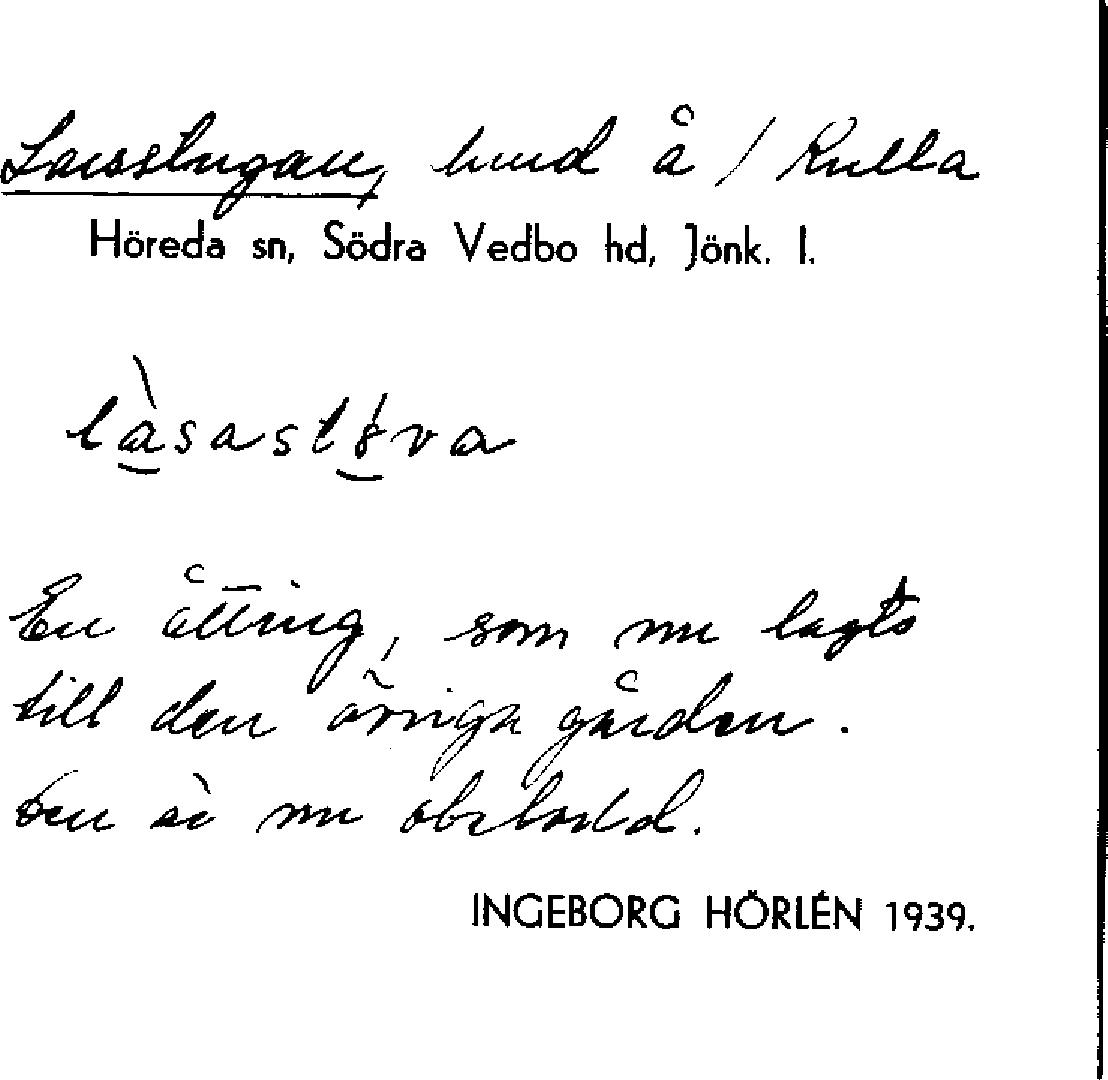 Larsstugan, hmd å / Kulla
Höreda sn, Södra Vedbo hd, Jönk. l.
làsastɵ́va
En åtting, som nu lagts
till den övriga gården.
Den är nu obebodd.
INGEBORG HÖRLÉN 1939.